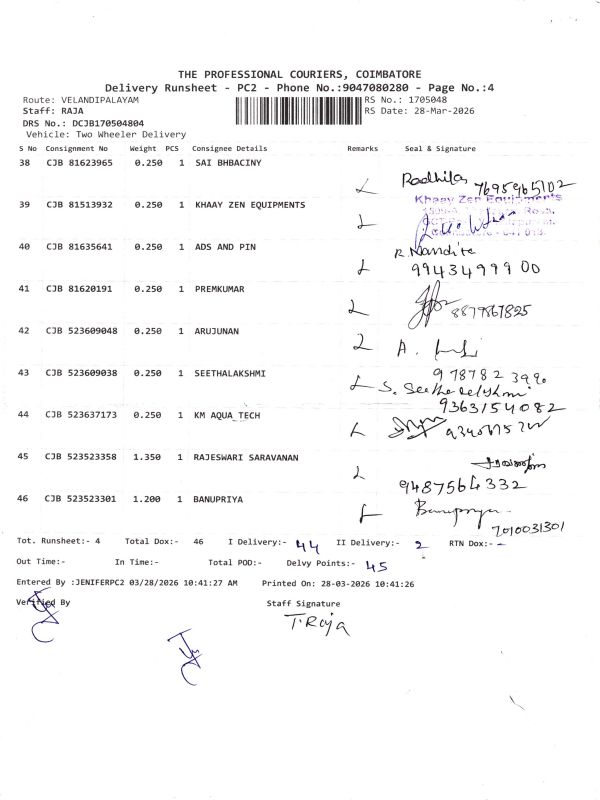 THE PROFESSIONAL COURIERS, COIMBATORE
Delivery Runsheet - PC2 - Phone No.:9047080280 - Page No.:4
Route: VELANDIPALAYAM RS No.: 1705048
Staff: RAJA RS Date: 28-Mar-2026
DRS No.: DCJB170504804
Vehicle: Two Wheeler Delivery
S No Consignment No Weight PCS Consignee Details Remarks Seal & Signature
38 CJB 81623965 0.250 1 SAI BHBACINY
Radhika 7695965102
39 CJB 81513932 0.250 1 KHAAY ZEN EQUIPMENTS
Khaay Zen Equipments
40 CJB 81635641 0.250 1 ADS AND PIN
R. Nandita
9943499900
41 CJB 81620191 0.250 1 PREMKUMAR
8879867825
42 CJB 523609048 0.250 1 ARUJUNAN
A.
43 CJB 523609038 0.250 1 SEETHALAKSHMI
9787823990
S.
9363154082
44 CJB 523637173 0.250 1 KM AQUA TECH
45 CJB 523523358 1.350 1 RAJESWARI SARAVANAN
9487564332
46 CJB 523523301 1.200 1 BANUPRIYA
Banupriya
7010031301
Tot. Runsheet:- 4 Total Dox:- 46 I Delivery:- 44 II Delivery:- 2 RTN Dox:- -
Out Time:- In Time:- Total POD:- Delvy Points:- 45
Entered By :JENIFERPC2 03/28/2026 10:41:27 AM Printed On: 28-03-2026 10:41:26
Verified By Staff Signature
T. Raja